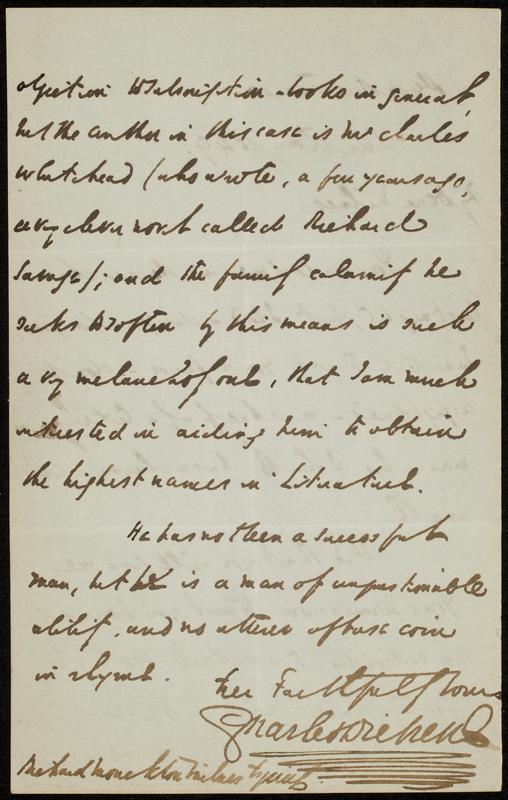 objection to Subscription-books in general,
but the author in this case is Mr Charles
Whitehead (who wrote, a few years ago,
a very clever novel called Richard
Savage); and the family calamity he
seeks to soften by this means is such
a very melancholy one, that I am much
interested in aiding him to obtain
the highest names in Literature.
He has not been a successful
man, but he is a man of unquestionable
ability, and no utterer of base coin
in rhyme.
Ever Faithfully Yours
Charles Dickens
Richard Monckton Milnes Esquire.